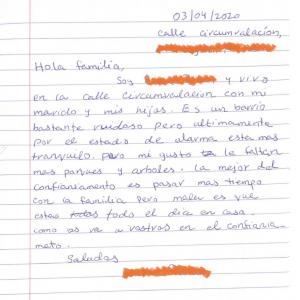 03/04/2020
calle circumvalación,
Hola familia,
Soy y vivo
en la calle Circumvalacion con mi
marido y mis hijas. Es un barrio
bastante ruidoso pero ultimamente
por el estado de alarma esta mas
tranquilo. Para mi gusto le faltan
mas parques y arboles. La mejor del
confianiamento es pasar mas tiempo
con la familia pero malea es que
estas todo el dia en casa.
como os va a vostros en el confiania-
mato.
Saludos